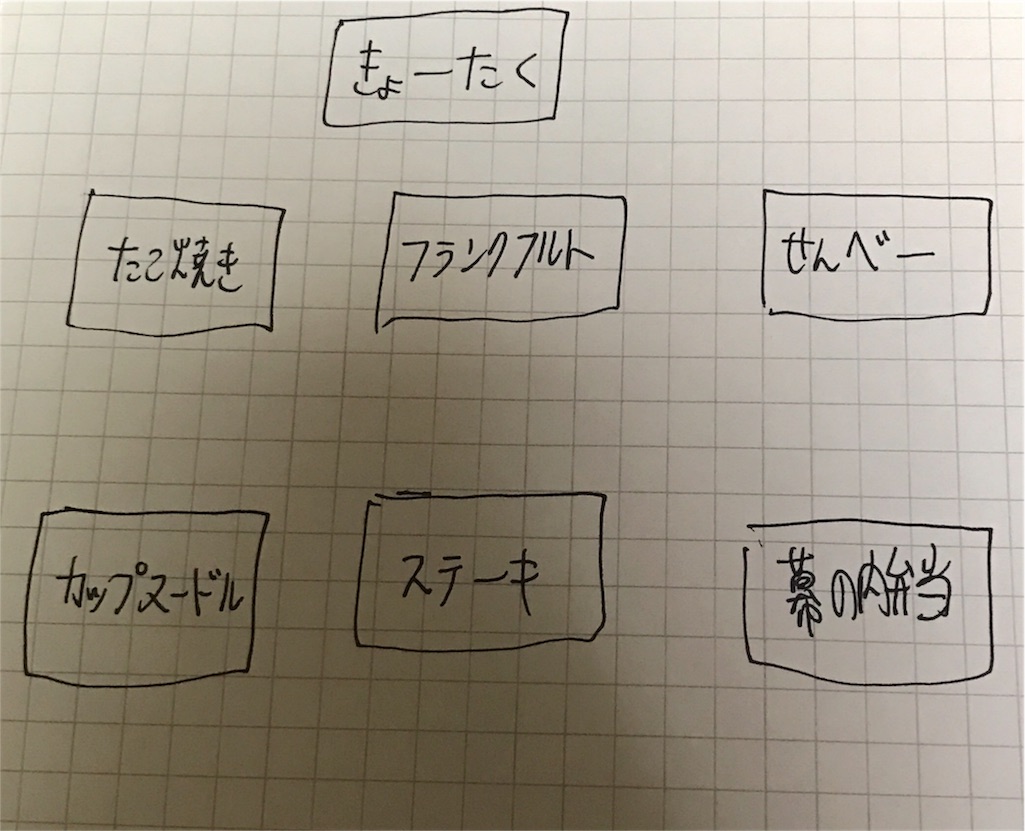 きょーたく
たこ焼き フランクフルト せんべー
カップヌードル ステーキ 幕の内弁当